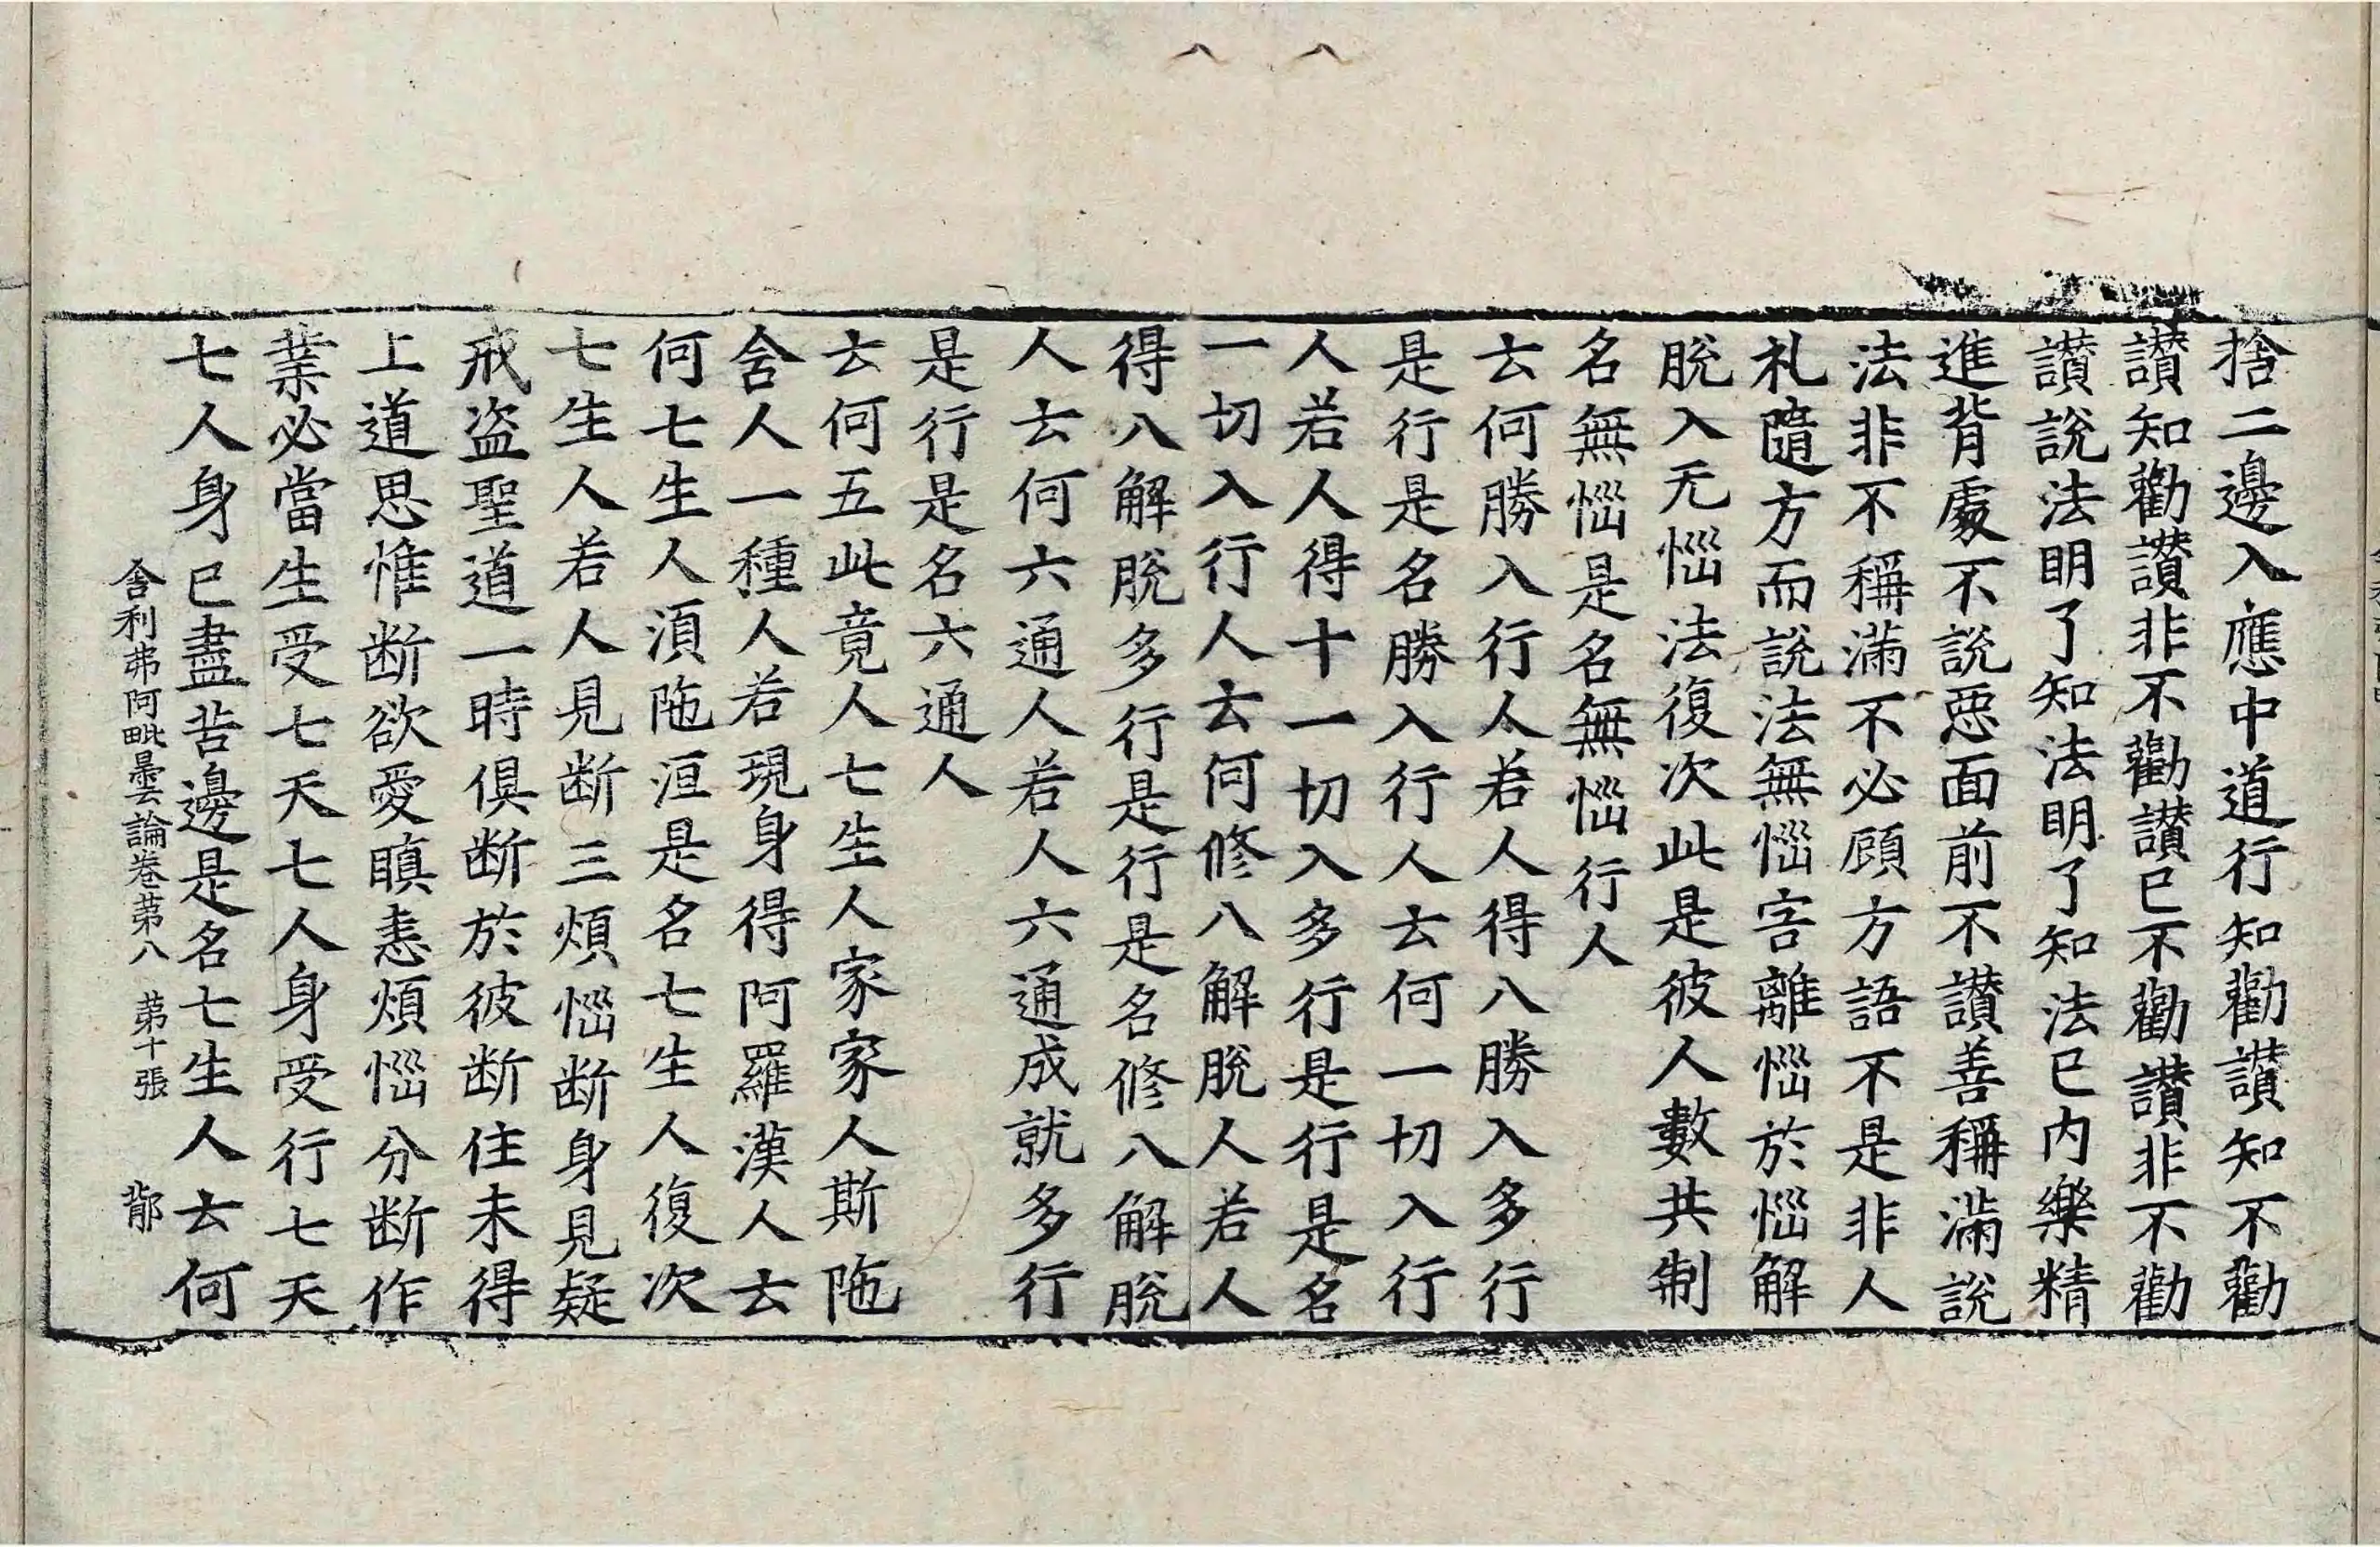 捨二邊入應中道行知勸讃知不勸
讃知勸讃非不勸讃已不勸讃非不勸
讃說法明了知法明了知法已内樂精
進背處不說惡面前不讃善稱滿說
法非不稱滿不必顧方語不是非人
礼隨方而說法無惱害離惱於惱解
脫入无惱法復次此是彼人數共制
名無惱是名無惱行人
去何勝入行人若人得八勝入多行
是行是名勝入行人去何一切入行
人若人得十一切入多行是行是名
一切入行人去何修八解脫人若人
得八解脫多行是行是名修八解脫
人去何六通人若人六通成就多行
是行是名六通人
去何五此竟人七生人家家人斯陁
含人一種人若現身得阿羅漢人去
何七生人湏陁洹是名七生人復次
七生人若人見断三煩惱断身見疑
戒盗聖道一時俱断於彼断住未得
上道思惟断欲愛瞋恚煩惱分断作
業必當生受七天七人身受行七天
七人身已盡苦邊是名七生人去何
舍利弗阿毗曇論卷苐八 苐十張